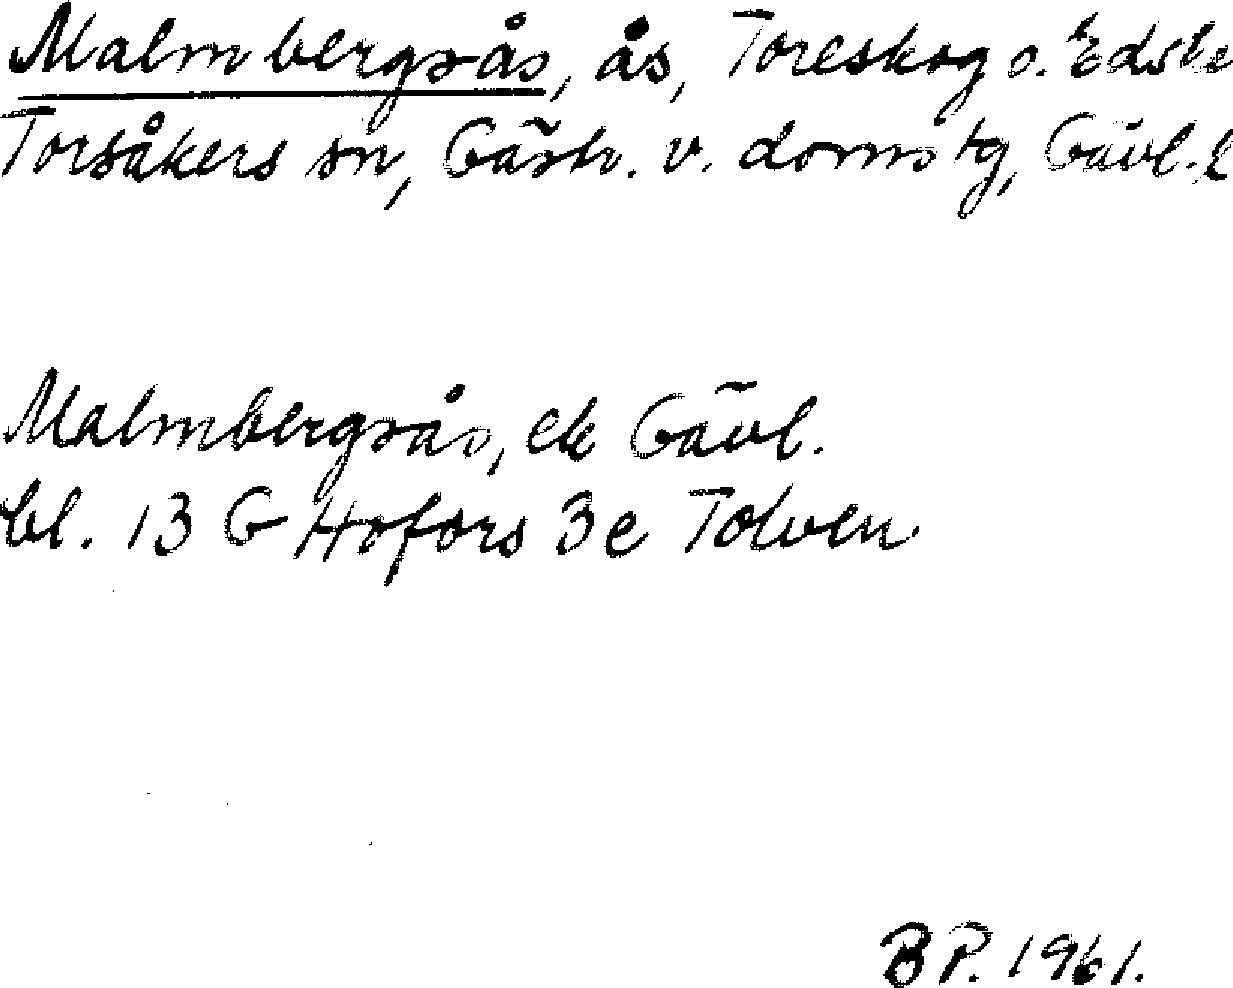 Malmbergsås, ås, Toreskog o. Edske
Torsåkers sn, Gästr. v. domstg, Gävl. l
Malmbergsås, ek Gävl.
bl. 13 G Hofors 3e Tolven
BP. 1961.